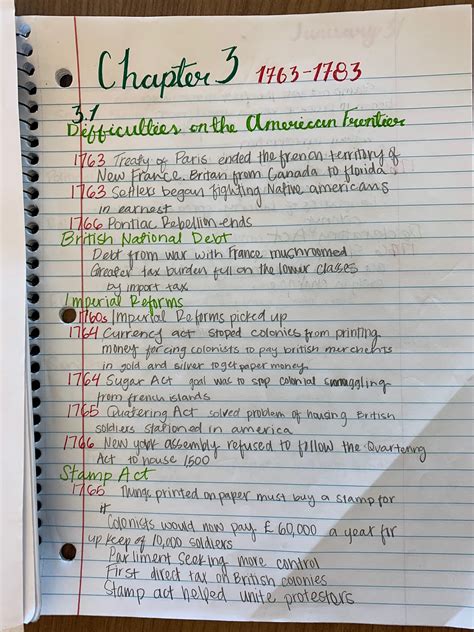 Chapter 3 1763-1783
3.1
Difficulties on the American Frontier
1763 Treaty of Paris ended the frenon territory of
New France. Britan from Canada to florida
1763 Settlers began fighting Native americans
in earnest
1766 Pontiac Rebellion-ends
British National Debt
Debt from war with France mushroomed
Greater tax burden full on the lower classes
by import tax
Imperial Reforms
1760s Imperial Reforms picked up
1764 Currency act stoped colonies from printing
money forcing colonists to pay british merchents
in gold and silver to get paper money
1764 Sugar Act goal was to stop colonial smuggling
from french islands
1765 Quatering Act solved problem of housing British
soldiers stationed in america
1766 New york assembly refused to follow the Quartering
Act to house 1500
Stamp Act
1765 Things printed on paper must buy a stamp for
it
Colonists would now pay £60,000 a year for
up keep of 10,000 soldiers
Parliment seeking more control
First direct tax on British colonies
Stamp act helped unite protestors